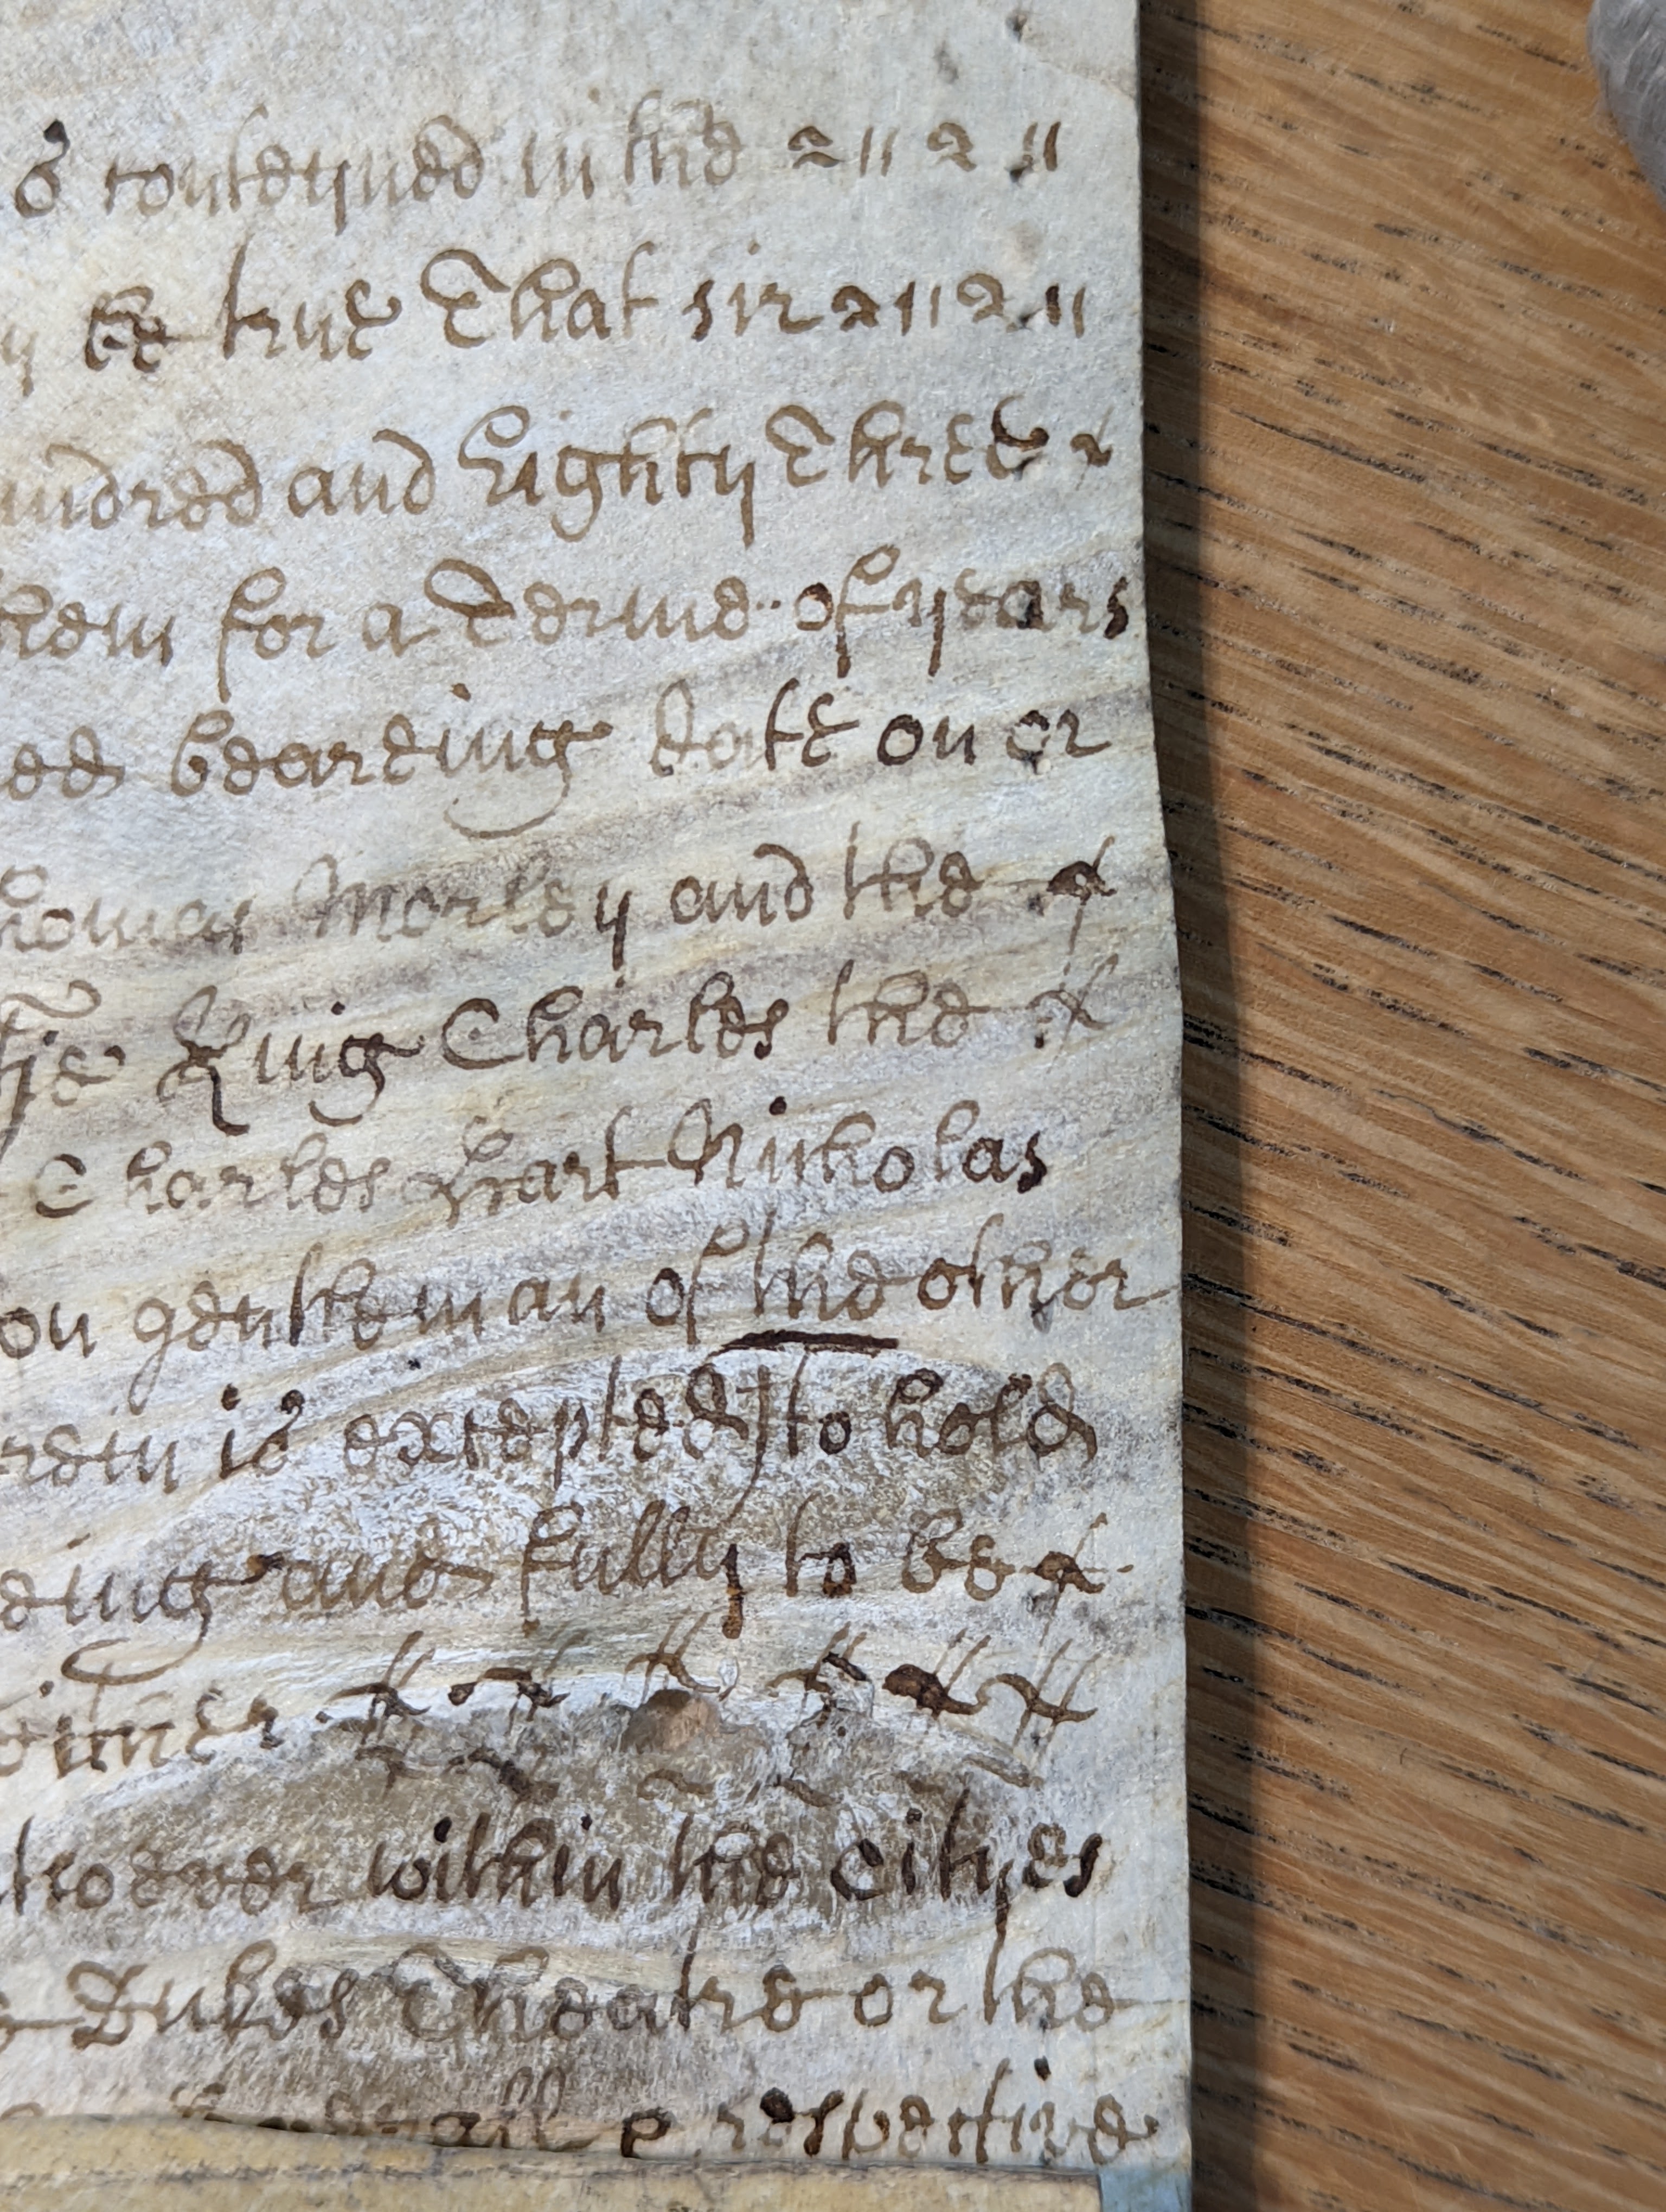 is conteyned in the
be true That sir
undred and Eighty Three
them for a Terme of years
ed beareing date on or
homas Morley and the
tie King Charles the
Charles Hart Nicholas
on gentleman of the other
rein is excepted) to hold
eing and fully to be

tsoever within the Cityes
Dukes Theatre or the
respective